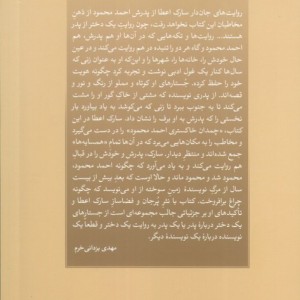 روایت‌های جان‌دار سارک اعطا از پدرش احمد محمود از ذهن
مخاطبان این کتاب نخواهد رفت، چون روایت یک دختر از پدر
هستند... روایت‌ها و تکه‌هایی که در آن‌ها او هم پدرش، هم
احمد محمود و گاه هر دو را تنیده در هم روایت می‌کند و در عین
حال خودش را، خانه‌ها را، شهرها را و این‌که او به عنوان زنی که
سال‌ها کنار یک غول ادبی نوشت و تجربه کرد چگونه هویت
خودش را جست. جستارهای او کوتاه و مملو از رنگ و نور و
قصه‌اند. از پدری نویسنده که مشتی از خاک گور او را مشت
می‌کند تا به جنوب ببرد تا زنی که می‌کوشد به یاد بیاورد بار
اولی که پدرش برف را به او نشان داد. سارک اعطا در این
کتاب، «چمدان خاکستری احمد محمود» را در دست می‌گیرد
و مخاطب را به مکان‌هایی می‌برد که در آن‌ها تمام «همسایه‌ها»
جمع شده‌اند و منتظر دیدار. سارک، پدرش و خودش را در قبال
هم روایت می‌کند و به یاد می‌آورد که چگونه احمد محمود،
محمود شد و محمود ماند و حالا اوست که بعد بیش از بیست
سال از مرگ نویسنده‌ی زمین سوخته از او می‌نویسد که چگونه
چراغ برافروخت. کتاب با نثر پُرجان و فضاساز سارک اعطا و
تأکیدهای او بر جزئیاتی جالب مجموعه‌ای است از جستارهای
یک دختر درباره‌ی پدر یا یک پدر به روایت یک دختر و قطعاً یک
نویسنده درباره‌ی یک نویسنده‌ی دیگر.
مهدی یزدانی‌خرم